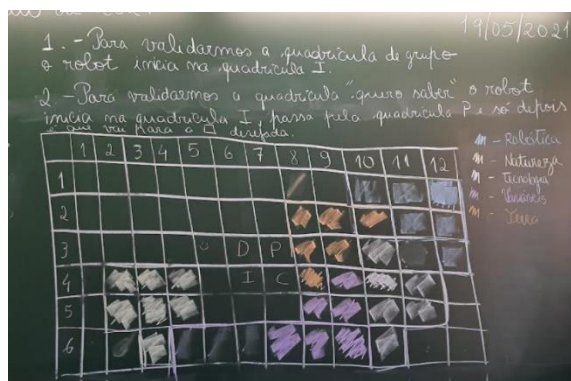 19/05/2021
1. - Para validarmos a quadrícula de grupo
o robot inicia na quadrícula I.
2. - Para validarmos a quadrícula "quero saber" o robot
inicia na quadrícula I, passa pela quadrícula P e só depois
é que vai para a □ desejada.
1 2 3 4 5 6 7 8 9 10 11 12
1
2
3 D P
4 I C
5
6
- Robótica
- Natureza
- Tecnologia
- Terra